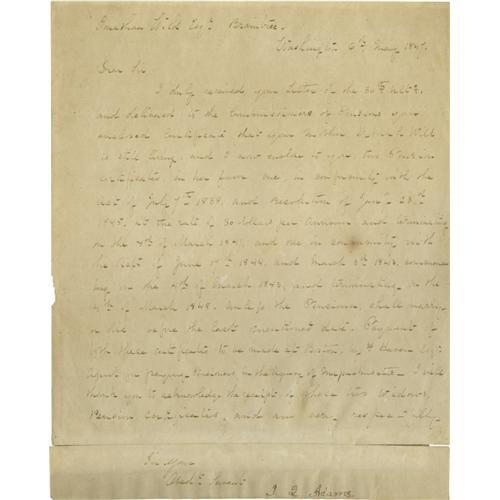 Jonathan Wild Esqr. Braintree.
Washington 6th May 1847.
Dear Sir
I duly received your Letter of the 30th ulto.
and delivered to the Commissioner of Pensions your
enclosed certificate that your Mother Wild
is still living, and I now enclose to you, two Pension
certificates, in her favor one, in conformity with the
act of July 7th 1838, and resolution of Jany. 23d
1843. at the rate of 30 dollars per annum and terminating
on the 4th of March 1843, and one in conformity with
the Acts of June 17th 1844, and March 3d 1843, commenc
ing on the 4th of March 1843, and terminating on the
4th of March 1848. unless the Pensioner, shall marry
or die before the last mentioned date. Payment of
both these certificates to be made at Boston, by Esqr
agent for paying Pensions in the agency of Massachusetts. I will
thank you to acknowledge the receipt of these two Widows,
Pension certificates, and am very respectfully
Sir Your
Obedt. Servant
J. Q. Adams.